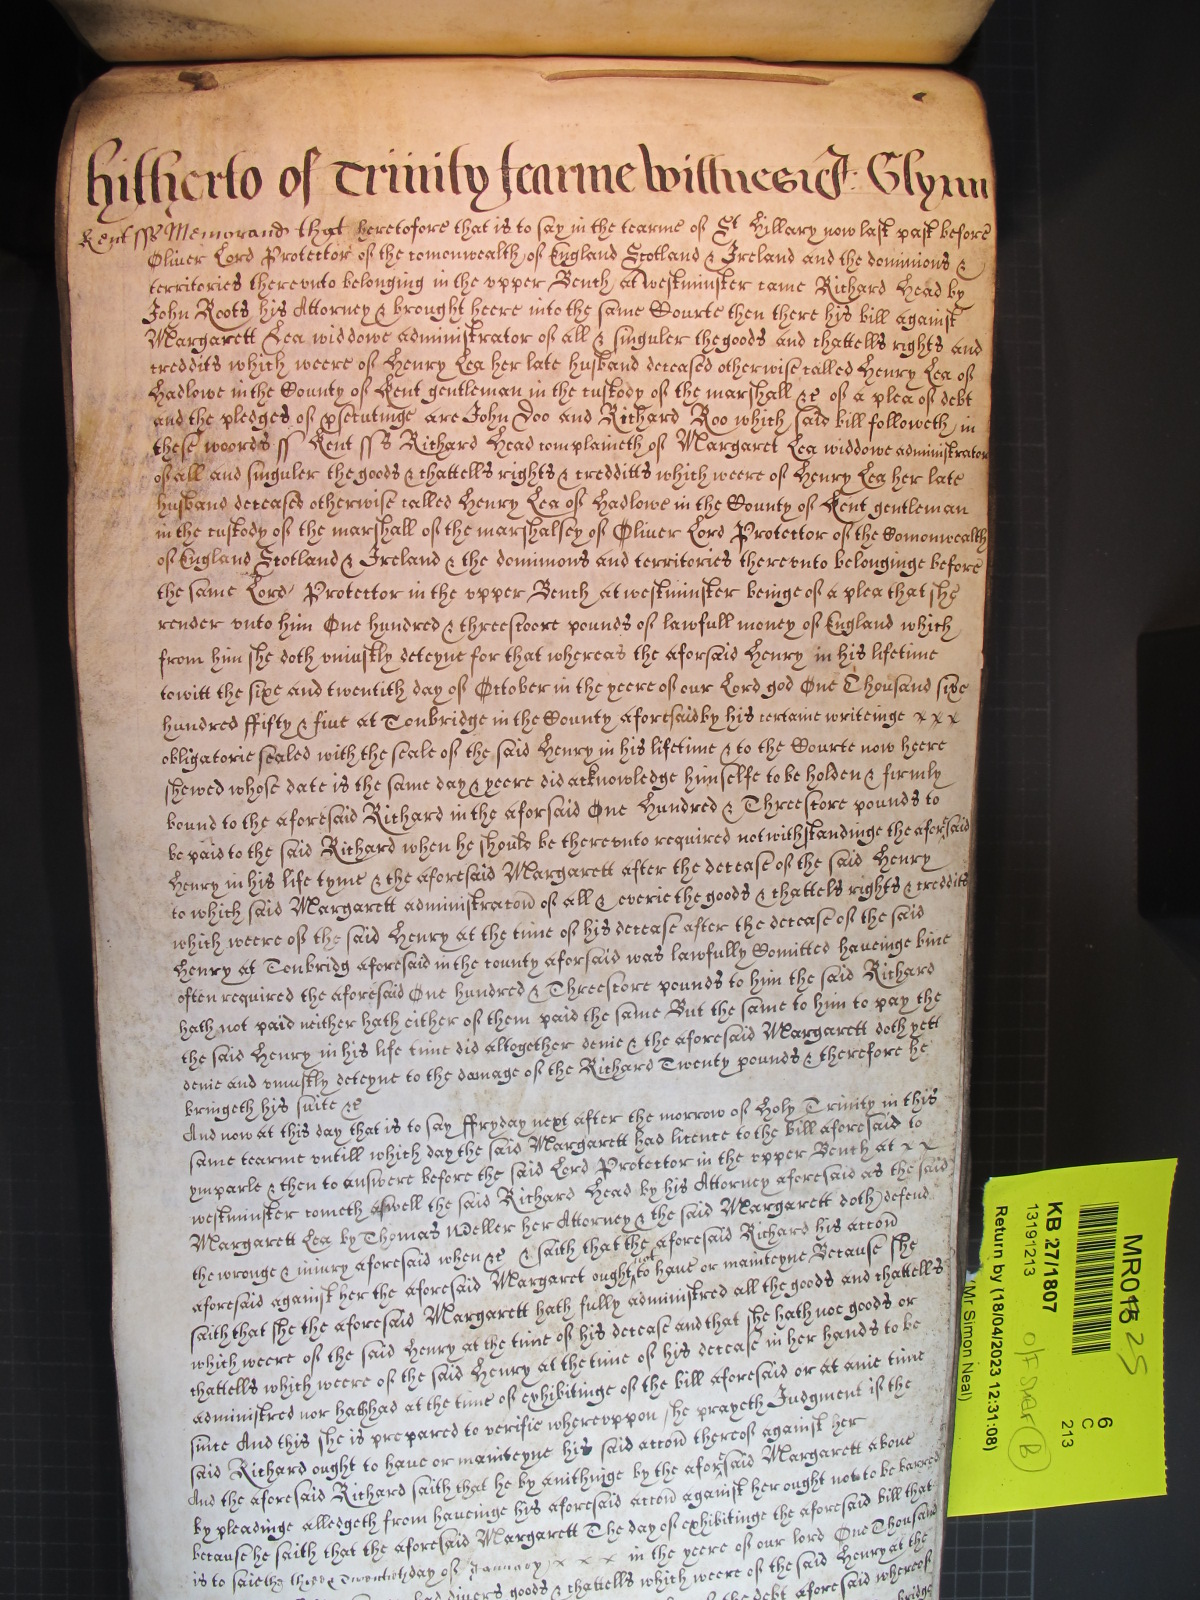 hitherto of Trinity tearme Wittnes J: Glynn
Kent ss Memorand that heretofore that is to say in the tearme of St Hillary now last past before
Oliver Lord Protector of the comonwealth of England Scotland & Ireland and the dominions &
territories therevnto belonging in the vpper Bench at westminster came Richard Head by
John Roots his Attorney & brought heere into the same Courte then there his bill against
Margarett Lea widdowe administrator of all & singuler the goods and chattells rights and
creddits which weere of Henry Lea her late husband deceased otherwise called Henry Lea of
Hadlowe in the County of Kent gentleman in the custody of the marshall &c of a plea of debt
and the pledges of psecutinge are John Doo and Richard Roo which said bill followeth in
these woords ss Kent ss Richard Head complaineth of Margaret Lea widdowe administrator
of all and singuler the goods & chattells rights & credditts which weere of Henry Lea her late
husband deceased otherwise called Henry Lea of Hadlowe in the County of Kent gentleman
in the custody of the marshall of the marshalsey of Oliver Lord Protector of the Comonwealth
of England Scotland & Ireland & the dominions and territories therevnto belonginge before
the same Lord Protector in the vpper Bench at westminster beinge of a plea that she
render vnto him One hundred & threescoore pounds of lawfull money of England which
from him she doth vniustly deteyne for that whereas the aforsaid Henry in his lifetime
towitt the sixe and twentith day of October in the yeere of our Lord god One Thousand sixe
hundred ffifty & fiue at Tonbridge in the County aforesaid by his certaine writeinge x x x
obligatorie sealed with the seale of the said Henry in his lifetime & to the Courte now heere
shewed whose date is the same day & yeere did acknowledge himselfe to be holden & firmly
bound to the aforesaid Richard in the aforsaid One Hundred & Threescore pounds to
be paid to the said Richard when he should be therevnto required notwithstandinge the aforsaid
Henry in his life tyme & the aforesaid Margarett after the decease of the said Henry
to which said Margarett administracon of all & everie the goods & chattels rights & creddits
which weere of the said Henry at the time of his decease after the decease of the said
Henry at Tonbridg aforesaid in the county aforsaid was lawfully Comitted haueinge bine
often required the aforesaid One hundred & Threescore pounds to him the said Richard
hath not paid neither hath either of them paid the same But the same to him to pay the
the said Henry in his life time did altogether denie & the aforesaid Margarett doth yett
denie and vniustly deteyne to the damage of the Richard Twenty pounds & therefore he
bringeth his suite &c
And now at this day that is to say ffryday next after the morrow of Holy Trinity in this
same tearme vntill which day the said Margarett had licence to the bill aforesaid to
ymparle & then to answere before the said Lord Protector in the vpper Bench at x x
westminster cometh aswell the said Richard Head by his Attorney aforesaid as the said
Margarett Lea by Thomas Weller her Attorney & the said Margarett doth defend
the wronge & iniury aforesaid when &c & saith that the aforesaid Richard his accon
aforesaid against her the aforesaid Margaret ought not to haue or mainteyne Because she
saith that she the aforesaid Margarett hath fully administred all the goods and chattells
which weere of the said Henry at the time of his decease and that she hath noe goods or
chattells which weere of the said Henry at the time of his decease in her hands to be
administred nor hath had at the time of exhibitinge of the bill aforesaid or at anie time
since And this she is prepared to verifie wherevppon she prayeth Judgment if the
said Richard ought to haue or mainteyne his said accon thereof against her
And the aforesaid Richard saith that he by anithinge by the aforsaid Margarett aboue
by pleadinge alledgeth from haueinge his aforesaid accon against her ought not to be barred
because he saith that the aforesaid Margarett The day of exhibitinge the aforesaid bill that
is to saie the three & Twentith day of January x x x in the yeere of our lord One Thousand
had divers goods & chattells which weere of the said Henry at the
the debt aforesaid whereof
bridge
MR018 25
6
C
213
KB 27/1807
13191213
O/F Shelf B
Return by (18/04/2023 12:31:08)
(Mr Simon Neal)